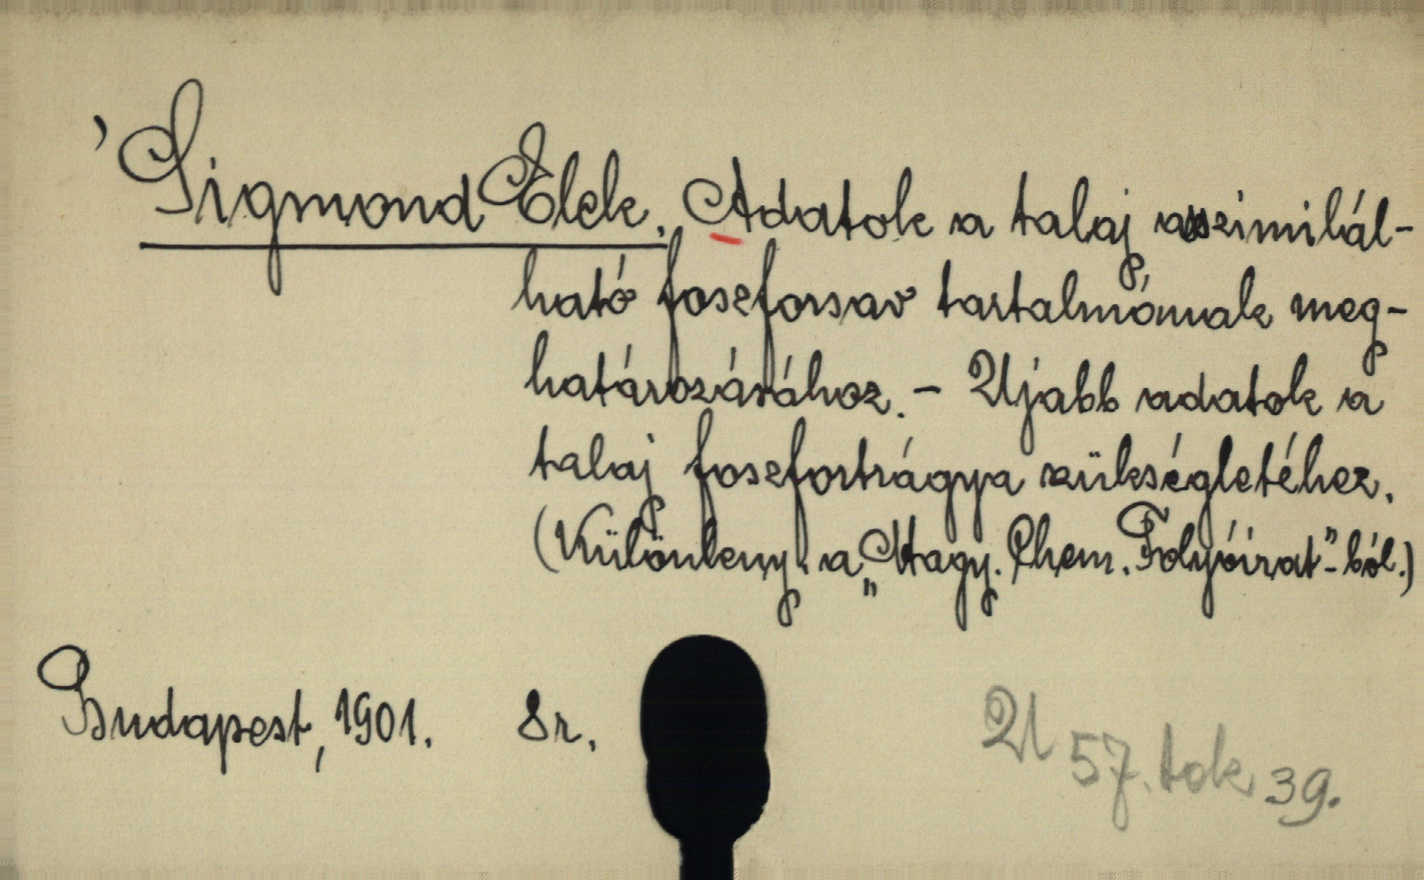 'Sigmond Elek. Adatok a talaj asszimilál-
ható foszforsav tartalmának meg-
határozásához. - Ujabb adatok a
talaj foszfortrágya szükségletéhez.
(Különleny. a „Magy. Chem. Folyóirat"-ból.)
Budapest, 1901. 8r.
U 57. tok 39.